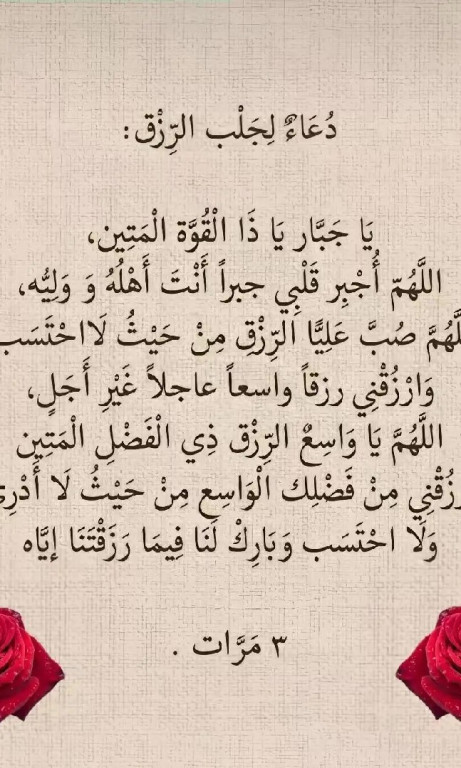 دُعَاءٌ لِجَلْب الرِّزْق:
يَا جَبَّار يَا ذَا الْقُوَّة الْمَتِين،
اللَّهُمّ أُجْبِر قَلْبِي جبراً أَنْتَ أَهْلُهُ وَ وَلِيُّه،
لَّهُمَّ صُبَّ عَلِيَّا الرِّزْقِ مِنْ حَيْثُ لَااحْتَسَب
وَارْزُقْنِي رزقاً واسعاً عاجلاً غَيْرِ أَجَلٍ،
اللَّهُمَّ يَا وَاسِعٌ الرِّزْق ذِي الْفَضْلِ الْمَتِين
رزُقْنِي مِنْ فَضْلِك الْوَاسِع مِنْ حَيْثُ لَا أَدْرِي
وَلَا احْتَسَب وَبَارِكْ لَنَا فِيمَا رَزَقْتَنَا إيَّاه
٣ مَرَّات .